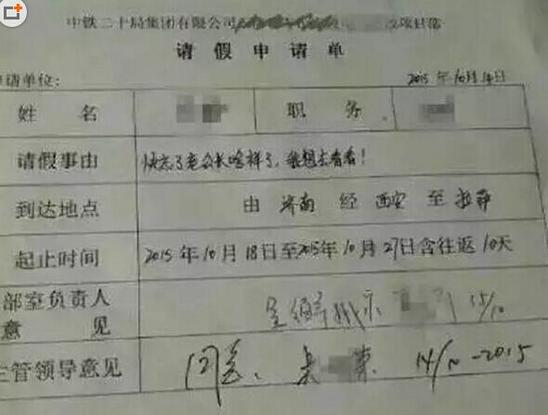 中铁二十局集团有限公司 项目部
请假申请单
申请单位: 2015年10月14日
姓名 职务
请假事由 快忘了老公长啥样了,我想去看看!
到达地点 由 济南 经 西安 至 拉萨
起止时间 2015年10月18日至2015年10月27日含往返10天
部室负责人意见 呈领导批示 15/10
主管领导意见 同意. 14/10-2015